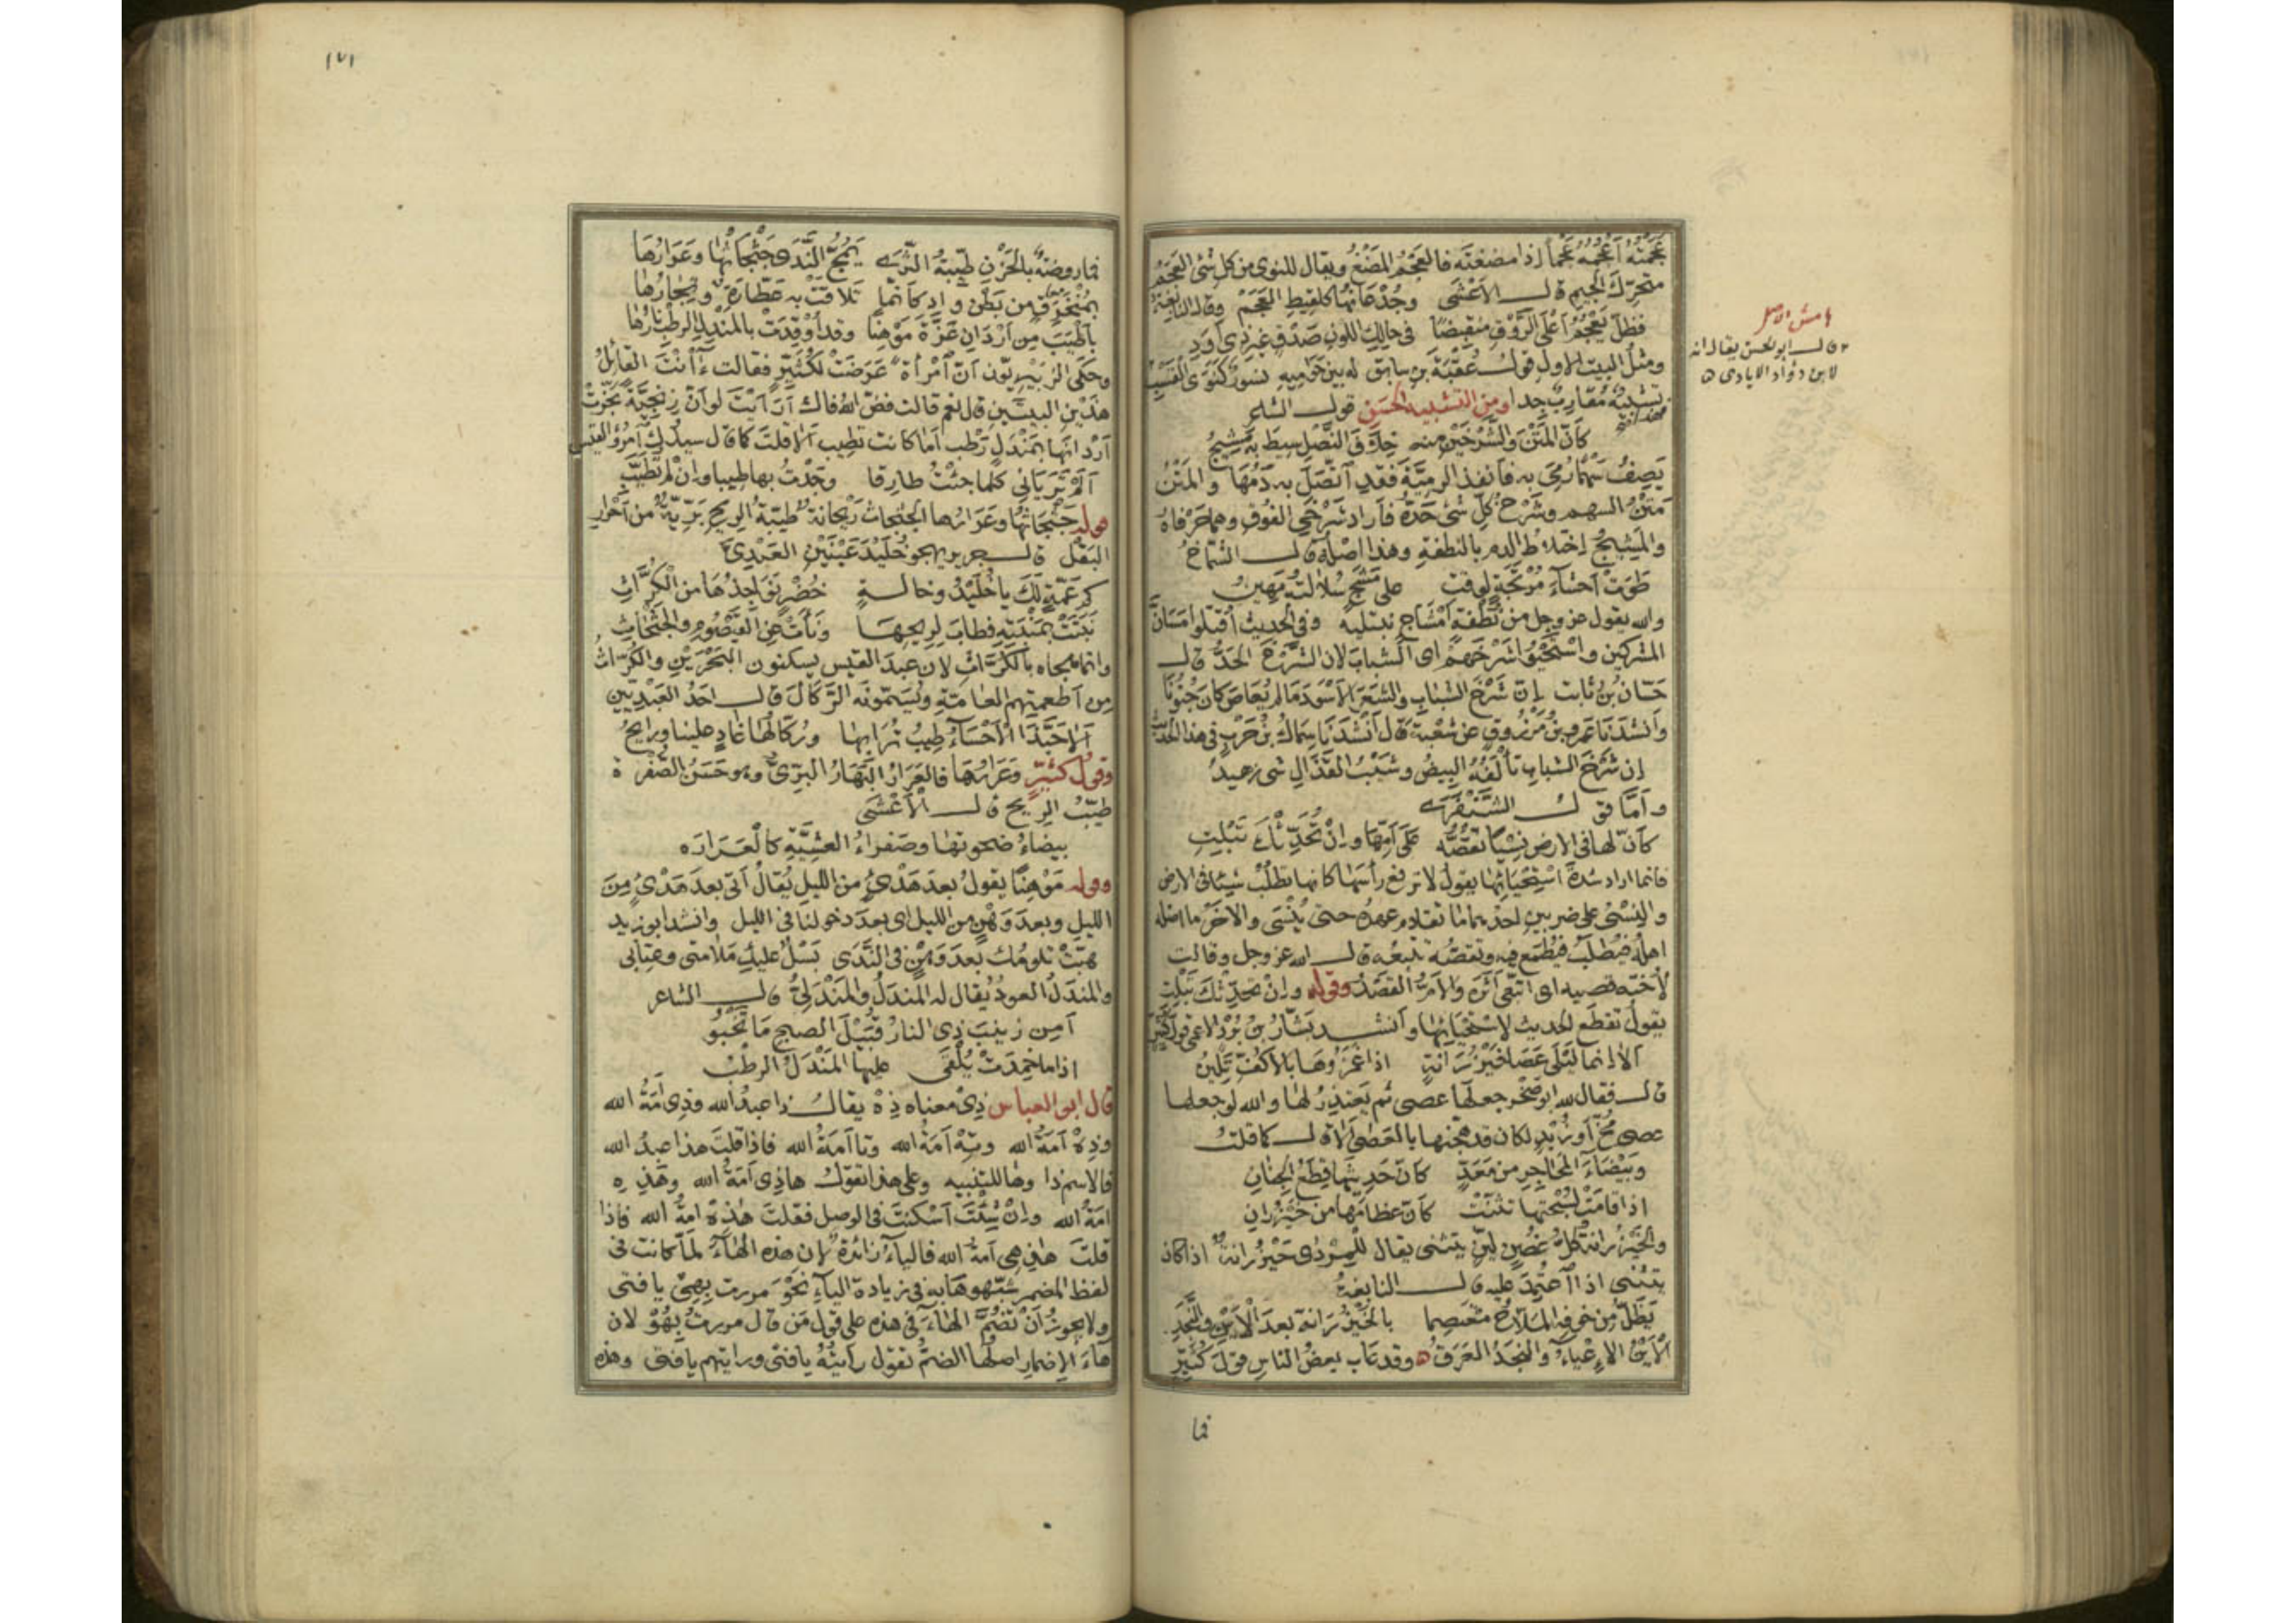 عَجَمْتُهُ أَعْجُمُهُ عَجْماً إذا مضغتَه فالعَجْمُ المَضْغُ ويقال للنوى من كل شئ العَجَمُ
متحرّك الجيم قال الأعْشَى وجُذْعَانُها كلَقِيطِ العَجَمْ وقال النابغة
فظلّ يَعْجُمُ أعْلَى الرَّوْقِ منقبضًا في حالك اللون صَدْقٍ غير ذي أَوَدِ
ومثلُ البيت الاول قولُ عُقْبَةَ بن سابق له بين حَوَامِيهِ نسورٌ كنَوَى القَسْبِ
فهذا تشبيهٌ مُقَارِبٌ جدا ومن التشبيه الحَسَنِ قول الشاعر
كأنّ المَتْنَ والشَّرْخَيْنِ منه خِلَافَ النَّصْلِ سِيطَ به مَشِيجُ
يَصِفُ سَهْمًا رُمِيَ به فأنفذ الرميَّةَ فقد اتّصل به دَمُهَا والمَتْنُ
مَتْنُ السهم وشَرْخُ كلّ شئ حَدُّهُ فأراد شَرْخَيِ الفُوقِ وهما حَرْفاهُ
والمَشِيجُ اختلاط الدم بالنطفة وهذا اصله قال الشمّاخُ
طَوَتْ أحشاءَ مُرْتَجَةٍ لوقتٍ على مَشَجٍ سُلالتُهُ مَهِينُ
والله يقول عز وجل من نُطْفَةٍ أَمْشَاجٍ نبتليه وفي الحديث اقتلوا مَسَانَّ
المشركين واسْتَحْيُوا شَرْخَهم اى الشبابَ لان الشَّرْخَ الحَدُّ قال
حَسّان بن ثابت إنّ شَرْخَ الشباب والشعَرَ الأسْوَدَ ما لم يُعَاصَ كان جُنُونَا
وأنشدَنا عَمْرو بنُ مَرْزُوقٍ عن شُعْبَةَ قال أنشدَنا سِمَاكُ بنُ حَرْبٍ في هذا الحديث
إن شَرْخَ الشباب تألَفُهُ البِيضُ وشَيْبُ القَذَالِ شئ زهيدُ
وأمّا قول الشَّنْفَرَى
كأنّ لها في الارض نِسْيًا تَقُصُّه على أَمِّهَا وإنْ تُحَدِّثْكَ تَبْلِتِ
فانما اراد شدةَ اسْتِحْيَائِها يقول لا ترفع رأسَها كأنها تطلُب شيئا في الارض
والنِسْيُ على ضربين احدهما ما تقادم عهدُه حتى يُنْسَى والآخَر ما اضله
اهلُه فيُطلَب فيُطْمَع فيه وتقصُّه تتبعُه قال الله عز وجل وقالت
لأختِه قصيه اى اتّبعي أثَرَه والأَمُّ القَصْدُ وقوله وإن تحدّثك تَبْلِتِ
يقول تقطع الحديث لاستحيائها وأنشد بَشّار بن بُرْد الاعمى قولَ كُثَيِّر
ألا إنما لَيْلَى عَصَا خَيْزُرَانَةٍ اذا غَمَزُوهَا بالأَكُفِّ تَلِينُ
قال فقال لله ابو صخر جعلها عصى ثم يَعْتذِرُ لها والله لو جعلها
عصى مُخٍّ أو زُبْدٍ لكان قد هجّنها بالعَصَى ألا قال كما قلتُ
وبَيْضَاءِ المَحَاجِرِ من مَعَدٍّ كأنّ حَدِيثَها قِطَعُ الجِنَانِ
اذا قامَتْ لسُبْحَتِها تثنّتْ كأنّ عظامَها من خَيْزُرَانِ
والخَيْزُرانةُ كلّ غُصْنٍ لَيِّنٍ يتثنى يقال للمِرْدِى خَيْزُرانةٌ اذا كان
يتثنى اذا اعتُمِدَ عليه قال النابغةُ
يَظَلّ من خوفِه المَلّاحُ معتَصِما بالخَيْزُرَانةِ بعدَ الأَيْنِ والنَّجَدِ
الأَيْنُ الإعْياءُ والنجَدُ العَرَقُ وقد عاب بعضُ الناس قولَ كُثَيِّرٍ
فما
هامش الاصل
قال ابو الحسن يقال انه
لابن دواد الايادى
١٧١
فما روضةٌ بالحَزْنِ طيّبةُ الثَّرَى يَمُجُّ النَّدَى جَثْجَاثُها وعَرَارُهَا
بمُنْخَرَقٍ من بَطْنِ وادٍ كأنّما تلاقَتْ به عَطّارَةٌ وتِجَارُهَا
بأَطْيَبَ من أرْدَانِ عَزَّةَ مَوْهِنًا وقد أُوقِدَتْ بالمَنْدَلِ الرطْبِ نارُها
وحكى الزُبَيْريّون أنّ امْرأةً عَرَضَتْ لكُثَيِّرٍ فقالت أأنْتَ القائلُ
هذَيْنِ البيتَيْنِ قال نعم قالت فضّ الله فاك أرَأيْتَ لو أنّ زِنْجِيَّةً بَخَّرَتْ
أرْدانَها بمَنْدَلٍ رَطْبٍ أما كانت تطيب ألا قلتَ كما قال سيدُك امْرؤ القيس
أَلَمْ تَرَيَاني كلّما جئْتُ طارقا وجَدْتُ بها طيبا وإن لم تَطَيَّبِ
قوله جَثْجَاثُها وعَرَارُها الجَثْجاثُ رَيْحانةٌ طيّبةُ الريحِ بَرِّيّةٌ من أحْرارِ
البَقْلِ قال جرير يهجو خُلَيْدَ عَيْنَيْنِ العَبْدِيَّ
كم عَمّةٍ لكَ يا خُلَيْدُ وخالةٍ خُضْرٍ نَوَاجِذُهَا من الكُرّاثِ
نَبَتَتْ بمَنْبِتِهِ فطابَ لريحهَا ونأتْ عن القَيْصُومِ والجَثْجَاثِ
وانما هجاه بالكُرّاثِ لان عبدَ القيس يسكنون البَحْرَيْنِ والكُرّاثُ
من أطعمتهم العامّةُ ويُسَمّونَه الرَّكَّالَ قال احَدُ العَبْدِيّين
ألا حَبَّذا الأحْسَاءُ طِيبُ تُرَابِها ورُكّالُها غادٍ علينا ورائحُ
وقولُ كُثَيِّرٍ وعَرَارُهَا فالعَرَارُ البَهَارُ البَرِّيُّ وهو حَسَنُ الصُّفْرة
طيّبُ الريح قال الأعْشَى
بيضاءُ ضحوتها وصفراءُ العشِيّةِ كالعَرَارَه
وقوله مَوْهِنًا يقولُ بعدَ هَدْءٍ من الليل يُقال أتى بعدَ هَدْءٍ مِنَ
الليل وبعدَ وَهْنٍ من الليل اى بعدَ دخولنا في الليل وانشد ابو زيد
هبّتْ تلومُك بعدَ وَهْنٍ في النَّدَى بَسْلٌ عليكِ مَلَامتي وعتابي
والمَنْدَلُ العودُ يقال له المَنْدَلُ والمَنْدَلِيُّ قال الشاعر
أمِن زينبَ ذِى النارُ قُبَيْلَ الصبحِ مَا تَخْبُو
اذا ما خَمِدَتْ يُلْقَى عليها المَنْدَلُ الرطْبُ
قال ابو العباس ذِى معناه ذِهْ يقال ذا عبدُ الله وذِى أمَةُ الله
وذِهْ أمَةُ الله وتِهْ أمَةُ الله وتا أمَةُ الله فاذا قلتَ هذا عبدُ الله
فالاسمُ ذا وها للتنبيه وعلى هذا تقول هاذِى أمَةُ الله وهذِه
امَةُ الله وإنْ شِئْتَ أسْكَنْتَ في الوصل فقلتَ هذِهْ امةُ الله فاذا
قلتَ هذِهِى أمةُ الله فالياءُ زائدةٌ لان هذه الهاءَ لمّا كانت في
لفظ المضمر شبّهوها به في زيادة الياء نَحْوَ مررت بِهِى يا فتى
ولا يجوز أنْ تَضُمَّ الهاءَ في هذه على قول مَن قال مررتُ بِهُوْ لان
هاءَ الإضمار اصلُها الضمُّ تقول رأيتُهُ يا فتى ورأيتهم يا فتى وهذه